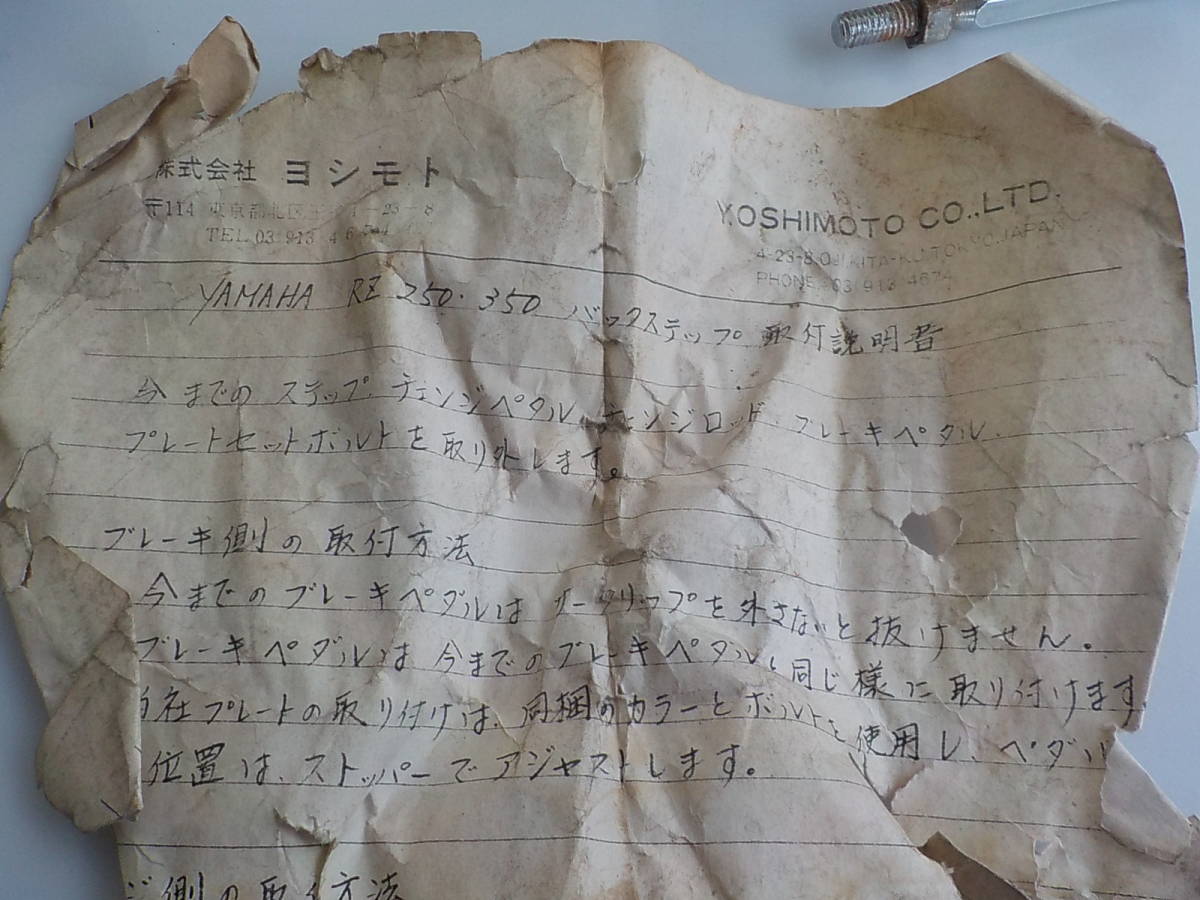 株式会社 ヨシモト
〒114 東京都北区王子4-23-8
TEL 03 913 4674
YOSHIMOTO CO.,LTD.
4-23-8 OJI KITA-KU TOKYO JAPAN
PHONE 03 913 4674
YAMAHA RZ 250・350 バックステップ 取付説明書
今までの ステップ、チェンジペダル、チェンジロッド、ブレーキペダル、
プレートセットボルトを取り外します。
ブレーキ側の取付方法
今までのブレーキペダルは サークリップを外さないと抜けません。
ブレーキペダルは今までのブレーキペダルと同じ様に取り付けます
当社プレートの取り付けは、同梱のカラーとボルトを使用し、ペダル
位置は、ストッパーでアジャストします。
ジ側の取付方法